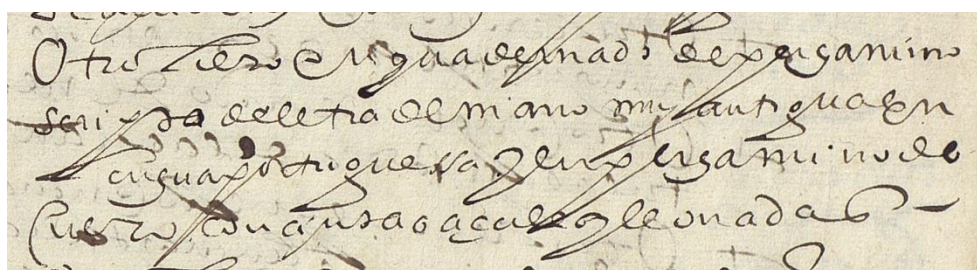 Otro libro enquadernado de pergamino
scripto de letra de mano muy antigua en
lengua portuguessa y en pergamino de
cuero con çintas açules y leonadas